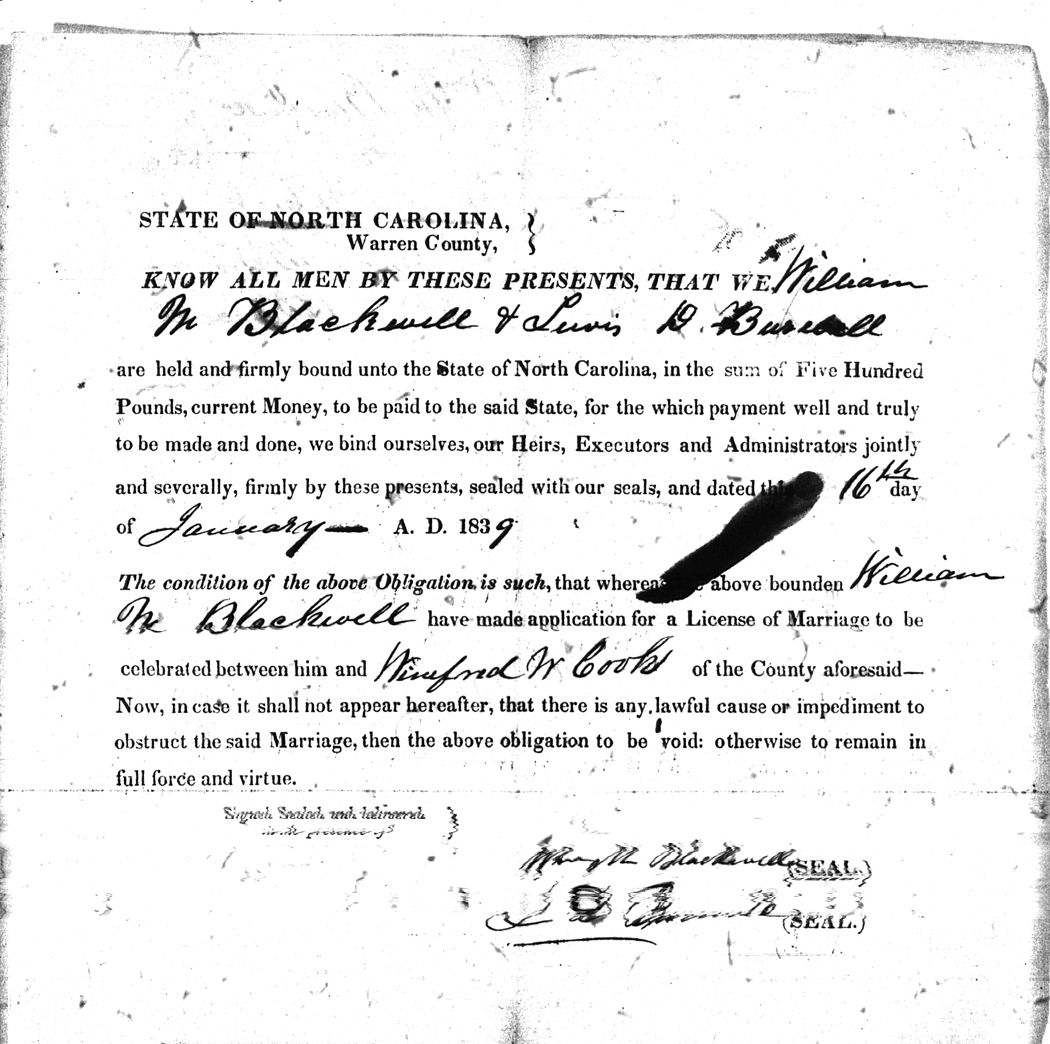 STATE OF NORTH CAROLINA,
Warren County,
KNOW ALL MEN BY THESE PRESENTS, THAT WE William
M Blackwell & Lewis D. Burwell
are held and firmly bound unto the State of North Carolina, in the sum of Five Hundred
Pounds, current Money, to be paid to the said State, for the which payment well and truly
to be made and done, we bind ourselves, our Heirs, Executors and Administrators jointly
and severally, firmly by these presents, sealed with our seals, and dated this 16th day
of January A. D. 1839
The condition of the above Obligation is such, that whereas above bounden William
M Blackwell have made application for a License of Marriage to be
celebrated between him and Winefred W Cooks of the County aforesaid—
Now, in case it shall not appear hereafter, that there is any lawful cause or impediment to
obstruct the said Marriage, then the above obligation to be void: otherwise to remain in
full force and virtue.
Signed, Sealed and delivered
in the presence of
Blackwell (SEAL.)
(SEAL.)